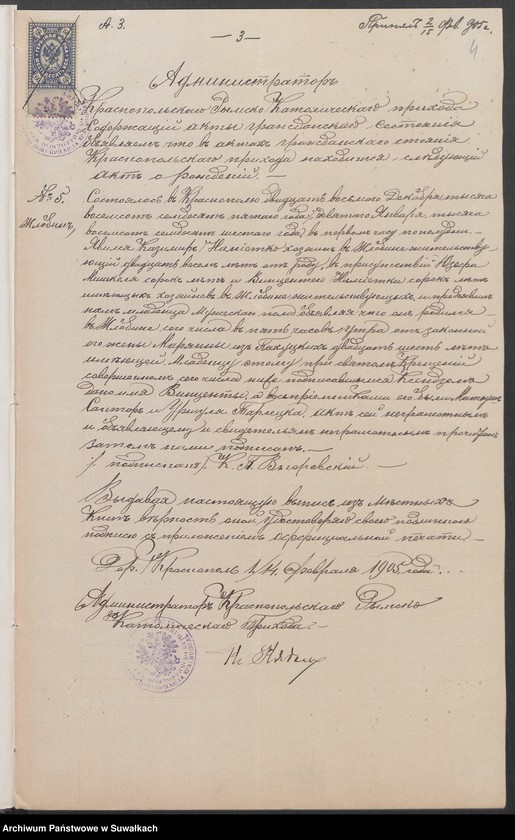 А. 3.
— 3 —
Принялъ 2/15 фев. 905 г.
4
Администраторъ
Краснопольскаго Римско Католическаго прихода
Содержащій акты гражданскаго состоянія
объявляетъ что въ актахъ гражданскаго стоянія
Краснопольскаго прихода находится слѣдующій
актъ о рожденіи. —
№ 5.
Жлобинъ,
Состоялось въ Краснополѣ двадцать восьмого Декабря тысяча
восемсотъ семдесятъ пятого года, девятого Января, тысяча
восемсотъ семдесятъ шестого года, въ первомъ часу пополудни. —
Явился Казимиръ хозяинъ въ Жлобинѣ жительству-
ющій двадцать восемь лѣтъ отъ роду, въ присутствіи
сорокъ лѣтъ и Викентія сорокъ лѣтъ
имѣющихъ хозяевъ въ Жлобинѣ жительствующихъ, и предъявилъ
намъ младенца мужескаго пола объявляя что онъ родился
въ Жлобинѣ сего числа въ пять часовъ утра отъ законной
его жены Маріанны изъ двадцать шесть лѣтъ
имѣющей. Младенцу этому при святомъ Крещеніи
совершенномъ сего числа ниже подписавшимся Ксендзомъ
дано имя Викентій, а воспріемниками его были Матеушъ
и Уршуля актъ сей неграмотнымъ
и объявляющему и свидѣтелямъ неграмотнымъ прочитанъ
затемъ нами подписанъ. —
/ подписалъ / К. А. Выгоровскій. —
Выдавая настоящую выпись изъ мѣстныхъ
книгъ вѣрность оной удостовѣряю своею
подписью съ приложеніемъ оффиціальной печати —
Дер. Краснополь 1/14 Февраля 1905 года...
Администраторъ Краснопольскаго Римско
Католическаго Прихода —
Archiwum Państwowe w Suwałkach